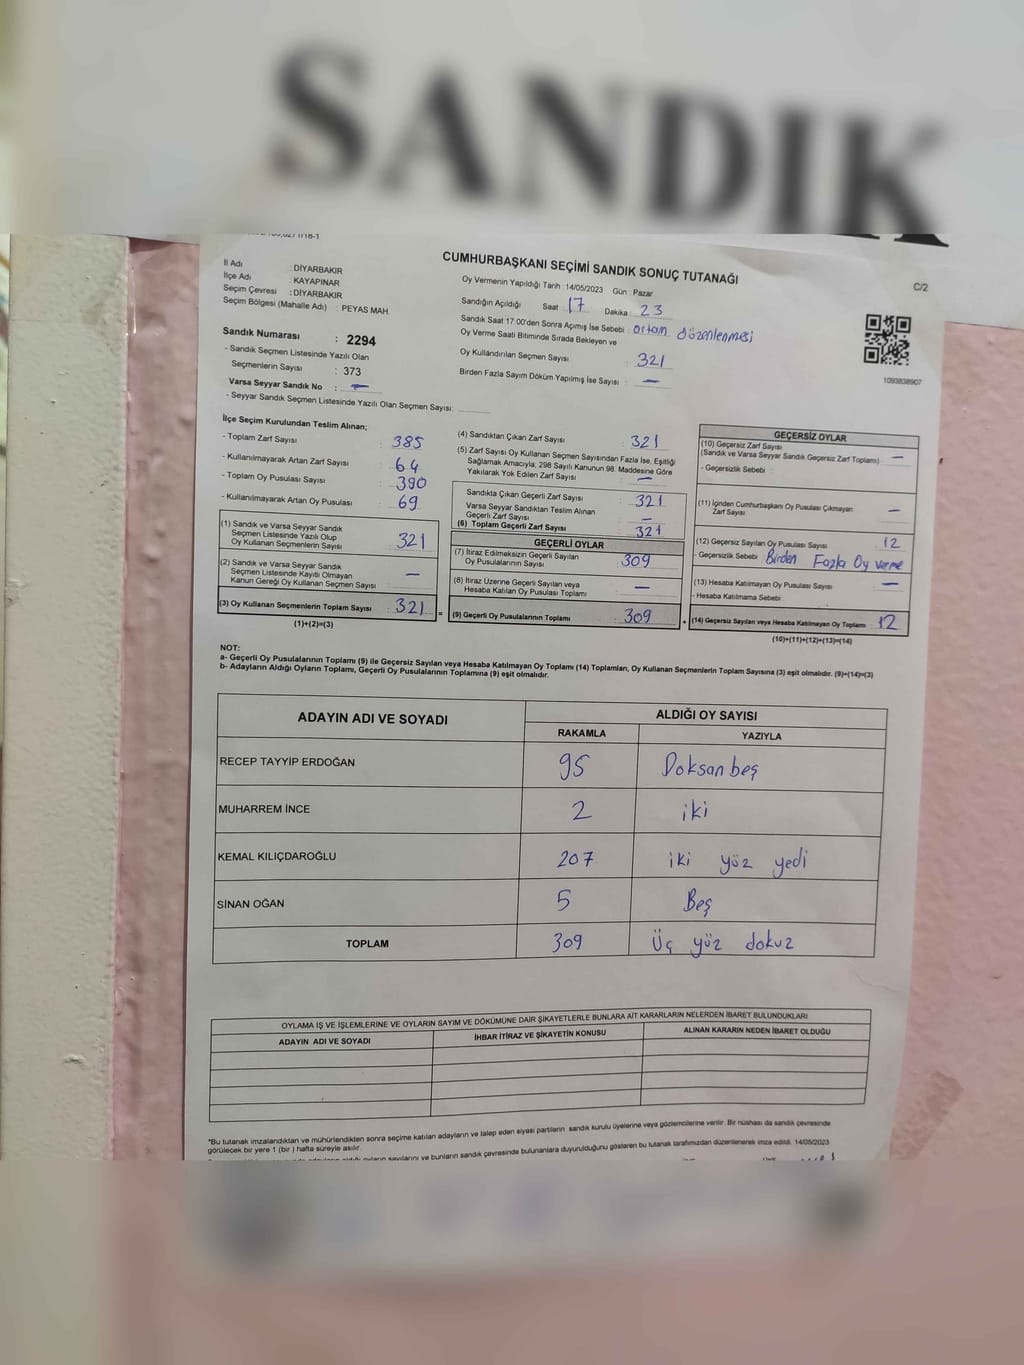 SANDIK
CUMHURBAŞKANI SEÇİMİ SANDIK SONUÇ TUTANAĞI
C/2
İl Adı : DİYARBAKIR
İlçe Adı : KAYAPINAR
Seçim Çevresi : DİYARBAKIR
Seçim Bölgesi (Mahalle Adı) : PEYAS MAH.
Oy Vermenin Yapıldığı Tarih :14/05/2023 Gün : Pazar
Sandığın Açıldığı Saat 17 Dakika : 23
Sandık Saat 17:00'den Sonra Açımış İse Sebebi : ortam düzenlenmesi
Oy Verme Saati Bitiminde Sırada Bekleyen ve
Oy Kullandırılan Seçmen Sayısı : 321
Birden Fazla Sayım Döküm Yapılmış İse Sayısı : —
1093838907
Sandık Numarası : 2294
- Sandık Seçmen Listesinde Yazılı Olan
Seçmenlerin Sayısı : 373
Varsa Seyyar Sandık No : —
- Seyyar Sandık Seçmen Listesinde Yazılı Olan Seçmen Sayısı:
İlçe Seçim Kurulundan Teslim Alınan;
- Toplam Zarf Sayısı : 385
- Kullanılmayarak Artan Zarf Sayısı : 64
- Toplam Oy Pusulası Sayısı : 390
- Kullanılmayarak Artan Oy Pusulası : 69
(1) Sandık ve Varsa Seyyar Sandık
Seçmen Listesinde Yazılı Olup
Oy Kullanan Seçmenlerin Sayısı : 321
(2) Sandık ve Varsa Seyyar Sandık
Seçmen Listesinde Kayıtlı Olmayan
Kanun Gereği Oy Kullanan Seçmen Sayısı : —
(3) Oy Kullanan Seçmenlerin Toplam Sayısı : 321
(1)+(2)=(3)
(4) Sandıktan Çıkan Zarf Sayısı : 321
(5) Zarf Sayısı Oy Kullanan Seçmen Sayısından Fazla İse, Eşitliği
Sağlamak Amacıyla, 298 Sayılı Kanunun 98. Maddesine Göre
Yakılarak Yok Edilen Zarf Sayısı : —
Sandıkta Çıkan Geçerli Zarf Sayısı : 321
Varsa Seyyar Sandıktan Teslim Alınan
Geçerli Zarf Sayısı : —
(6) Toplam Geçerli Zarf Sayısı : 321
GEÇERLİ OYLAR
(7) İtiraz Edilmeksizin Geçerli Sayılan
Oy Pusulalarının Sayısı : 309
(8) İtiraz Üzerine Geçerli Sayılan veya
Hesaba Katılan Oy Pusulası Toplamı : —
(9) Geçerli Oy Pusulalarının Toplamı : 309
GEÇERSİZ OYLAR
(10) Geçersiz Zarf Sayısı
(Sandık ve Varsa Seyyar Sandık Geçersiz Zarf Toplamı) : —
- Geçersizlik Sebebi :
(11) İçinden Cumhurbaşkanı Oy Pusulası Çıkmayan
Zarf Sayısı : —
(12) Geçersiz Sayılan Oy Pusulası Sayısı : 12
- Geçersizlik Sebebi : Birden Fazla Oy verme
(13) Hesaba Katılmayan Oy Pusulası Sayısı : —
- Hesaba Katılmama Sebebi :
(14) Geçersiz Sayılan veya Hesaba Katılmayan Oy Toplamı : 12
(10)+(11)+(12)+(13)=(14)
NOT:
a- Geçerli Oy Pusulalarının Toplamı (9) ile Geçersiz Sayılan veya Hesaba Katılmayan Oy Toplamı (14) Toplamları, Oy Kullanan Seçmenlerin Toplam Sayısına (3) eşit olmalıdır. (9)+(14)=(3)
b- Adayların Aldığı Oyların Toplamı, Geçerli Oy Pusulalarının Toplamına (9) eşit olmalıdır.
ADAYIN ADI VE SOYADI ALDIĞI OY SAYISI
RAKAMLA YAZIYLA
RECEP TAYYİP ERDOĞAN 95 Doksan beş
MUHARREM İNCE 2 iki
KEMAL KILIÇDAROĞLU 207 iki yöz yedi
SİNAN OĞAN 5 Beş
TOPLAM 309 Üç yöz dokuz
OYLAMA İŞ VE İŞLEMLERİNE VE OYLARIN SAYIM VE DÖKÜMÜNE DAİR ŞİKAYETLERLE BUNLARA AİT KARARLARIN NELERDEN İBARET BULUNDUKLARI
ADAYIN ADI VE SOYADI İHBAR İTİRAZ VE ŞİKAYETİN KONUSU ALINAN KARARIN NEDEN İBARET OLDUĞU
*Bu tutanak imzalandıktan ve mühürlendikten sonra seçime katılan adayların ve talep eden siyasi partilerin sandık kurulu üyelerine veya gözlemcilerine verilir. Bir nüshası da sandık çevresinde
görülecek bir yere 1 (bir ) hafta süreyle asılır.
sayılarını ve bunların sandık çevresinde bulunanlara duyurulduğunu gösteren bu tutanak tarafımızdan düzenlenerek imza edildi. 14/05/2023